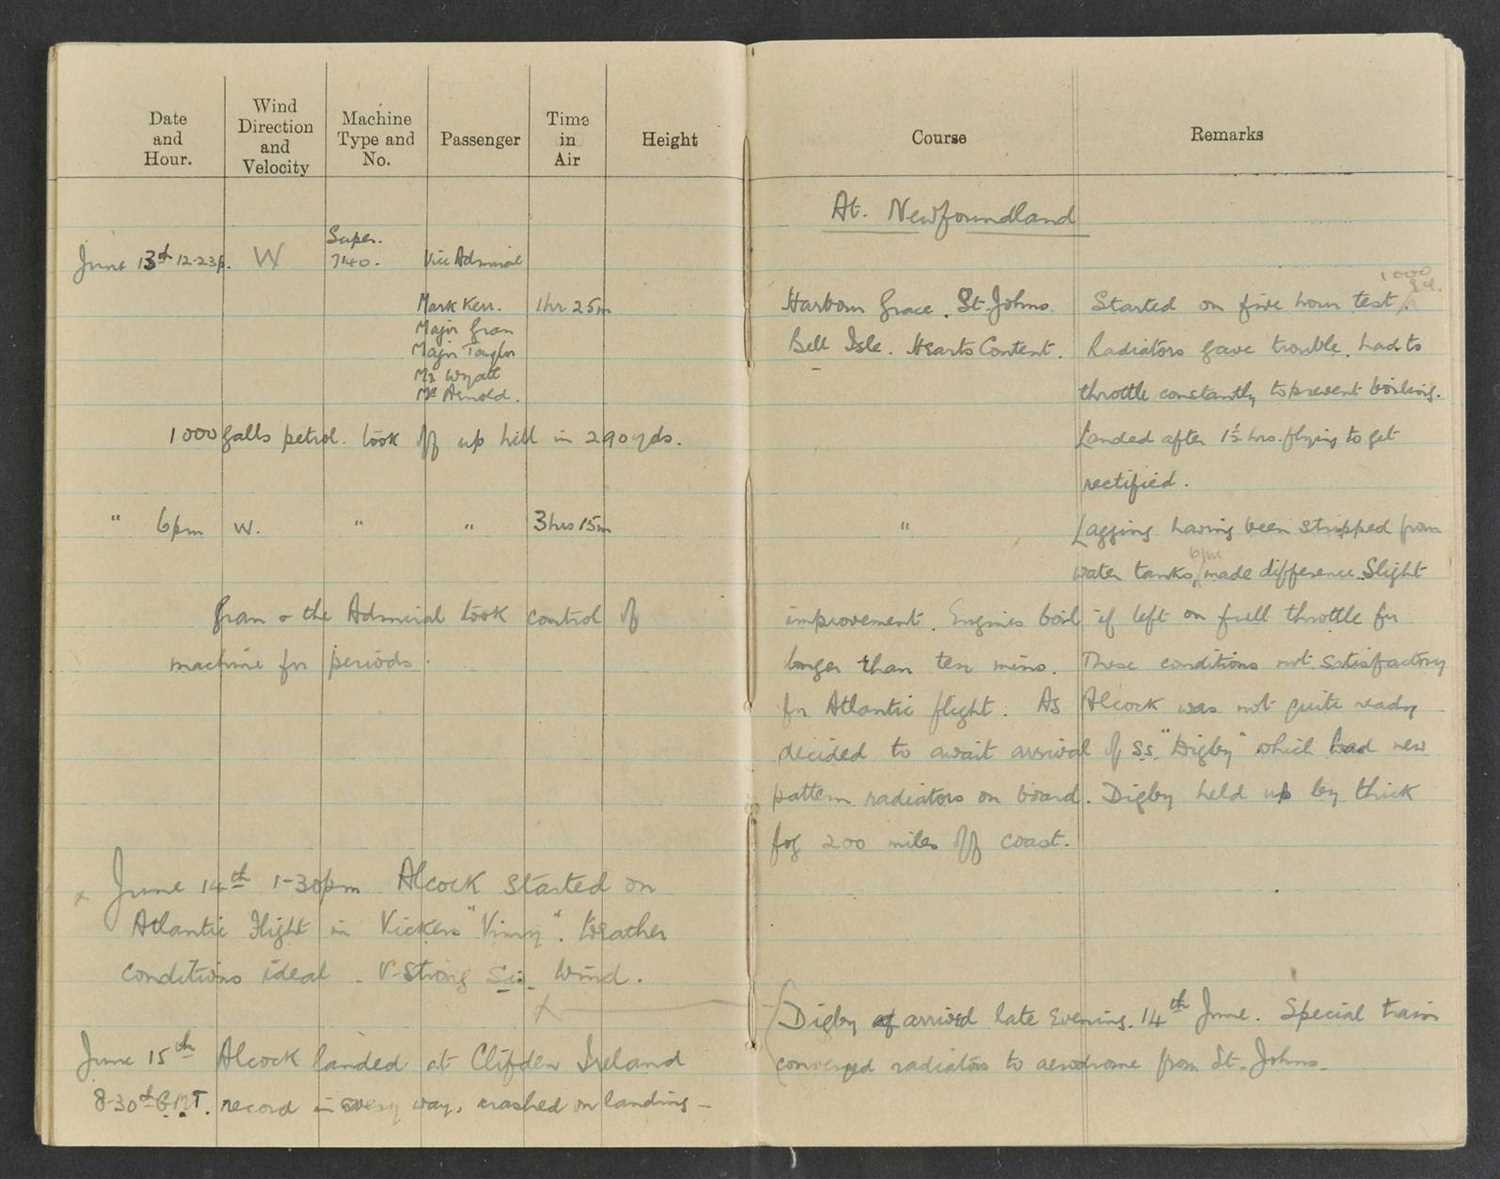 Date and Hour.
Wind Direction and Velocity
Machine Type and No.
Passenger
Time in Air
Height
Course
Remarks
At. Newfoundland
Super.
June 13th 12-23p. W 7140. Vice Admiral
Mark Kerr. 1hr 25m
Major Gran
Major Taylor
Mr Wyatt
Mr Arnold.
1000 galls petrol. took off up hill in 290yds.
" 6pm W. " " 3hrs 15m
Gran & the Admiral took control of
machine for periods.
x June 14th 1-30pm. Alcock started on
Atlantic Flight in Vickers "Vimy". Weather
conditions ideal - V-Strong Wind.
x
June 15th Alcock landed at Clifden Ireland
8-30 G.M.T. record in every way, crashed on landing -
1000
Harbour Grace. St. Johns. Started on five hour test.
Bell Isle. Hearts Content. Radiators gave trouble. had to
throttle constantly to prevent boiling.
Landed after 1½ hrs. flying to get
rectified.
" Lagging having been stripped from
6pm
water tanks, made difference. Slight
improvement. Engines boil if left on full throttle for
longer than ten mins. These conditions not satisfactory
for Atlantic flight. As Alcock was not quite ready
decided to await arrival of S.S. "Digby" which had new
pattern radiators on board. Digby held up by thick
fog 200 miles off coast.
Digby arrived late Evening. 14th June. Special train
conveyed radiators to aerodrome from St. Johns.